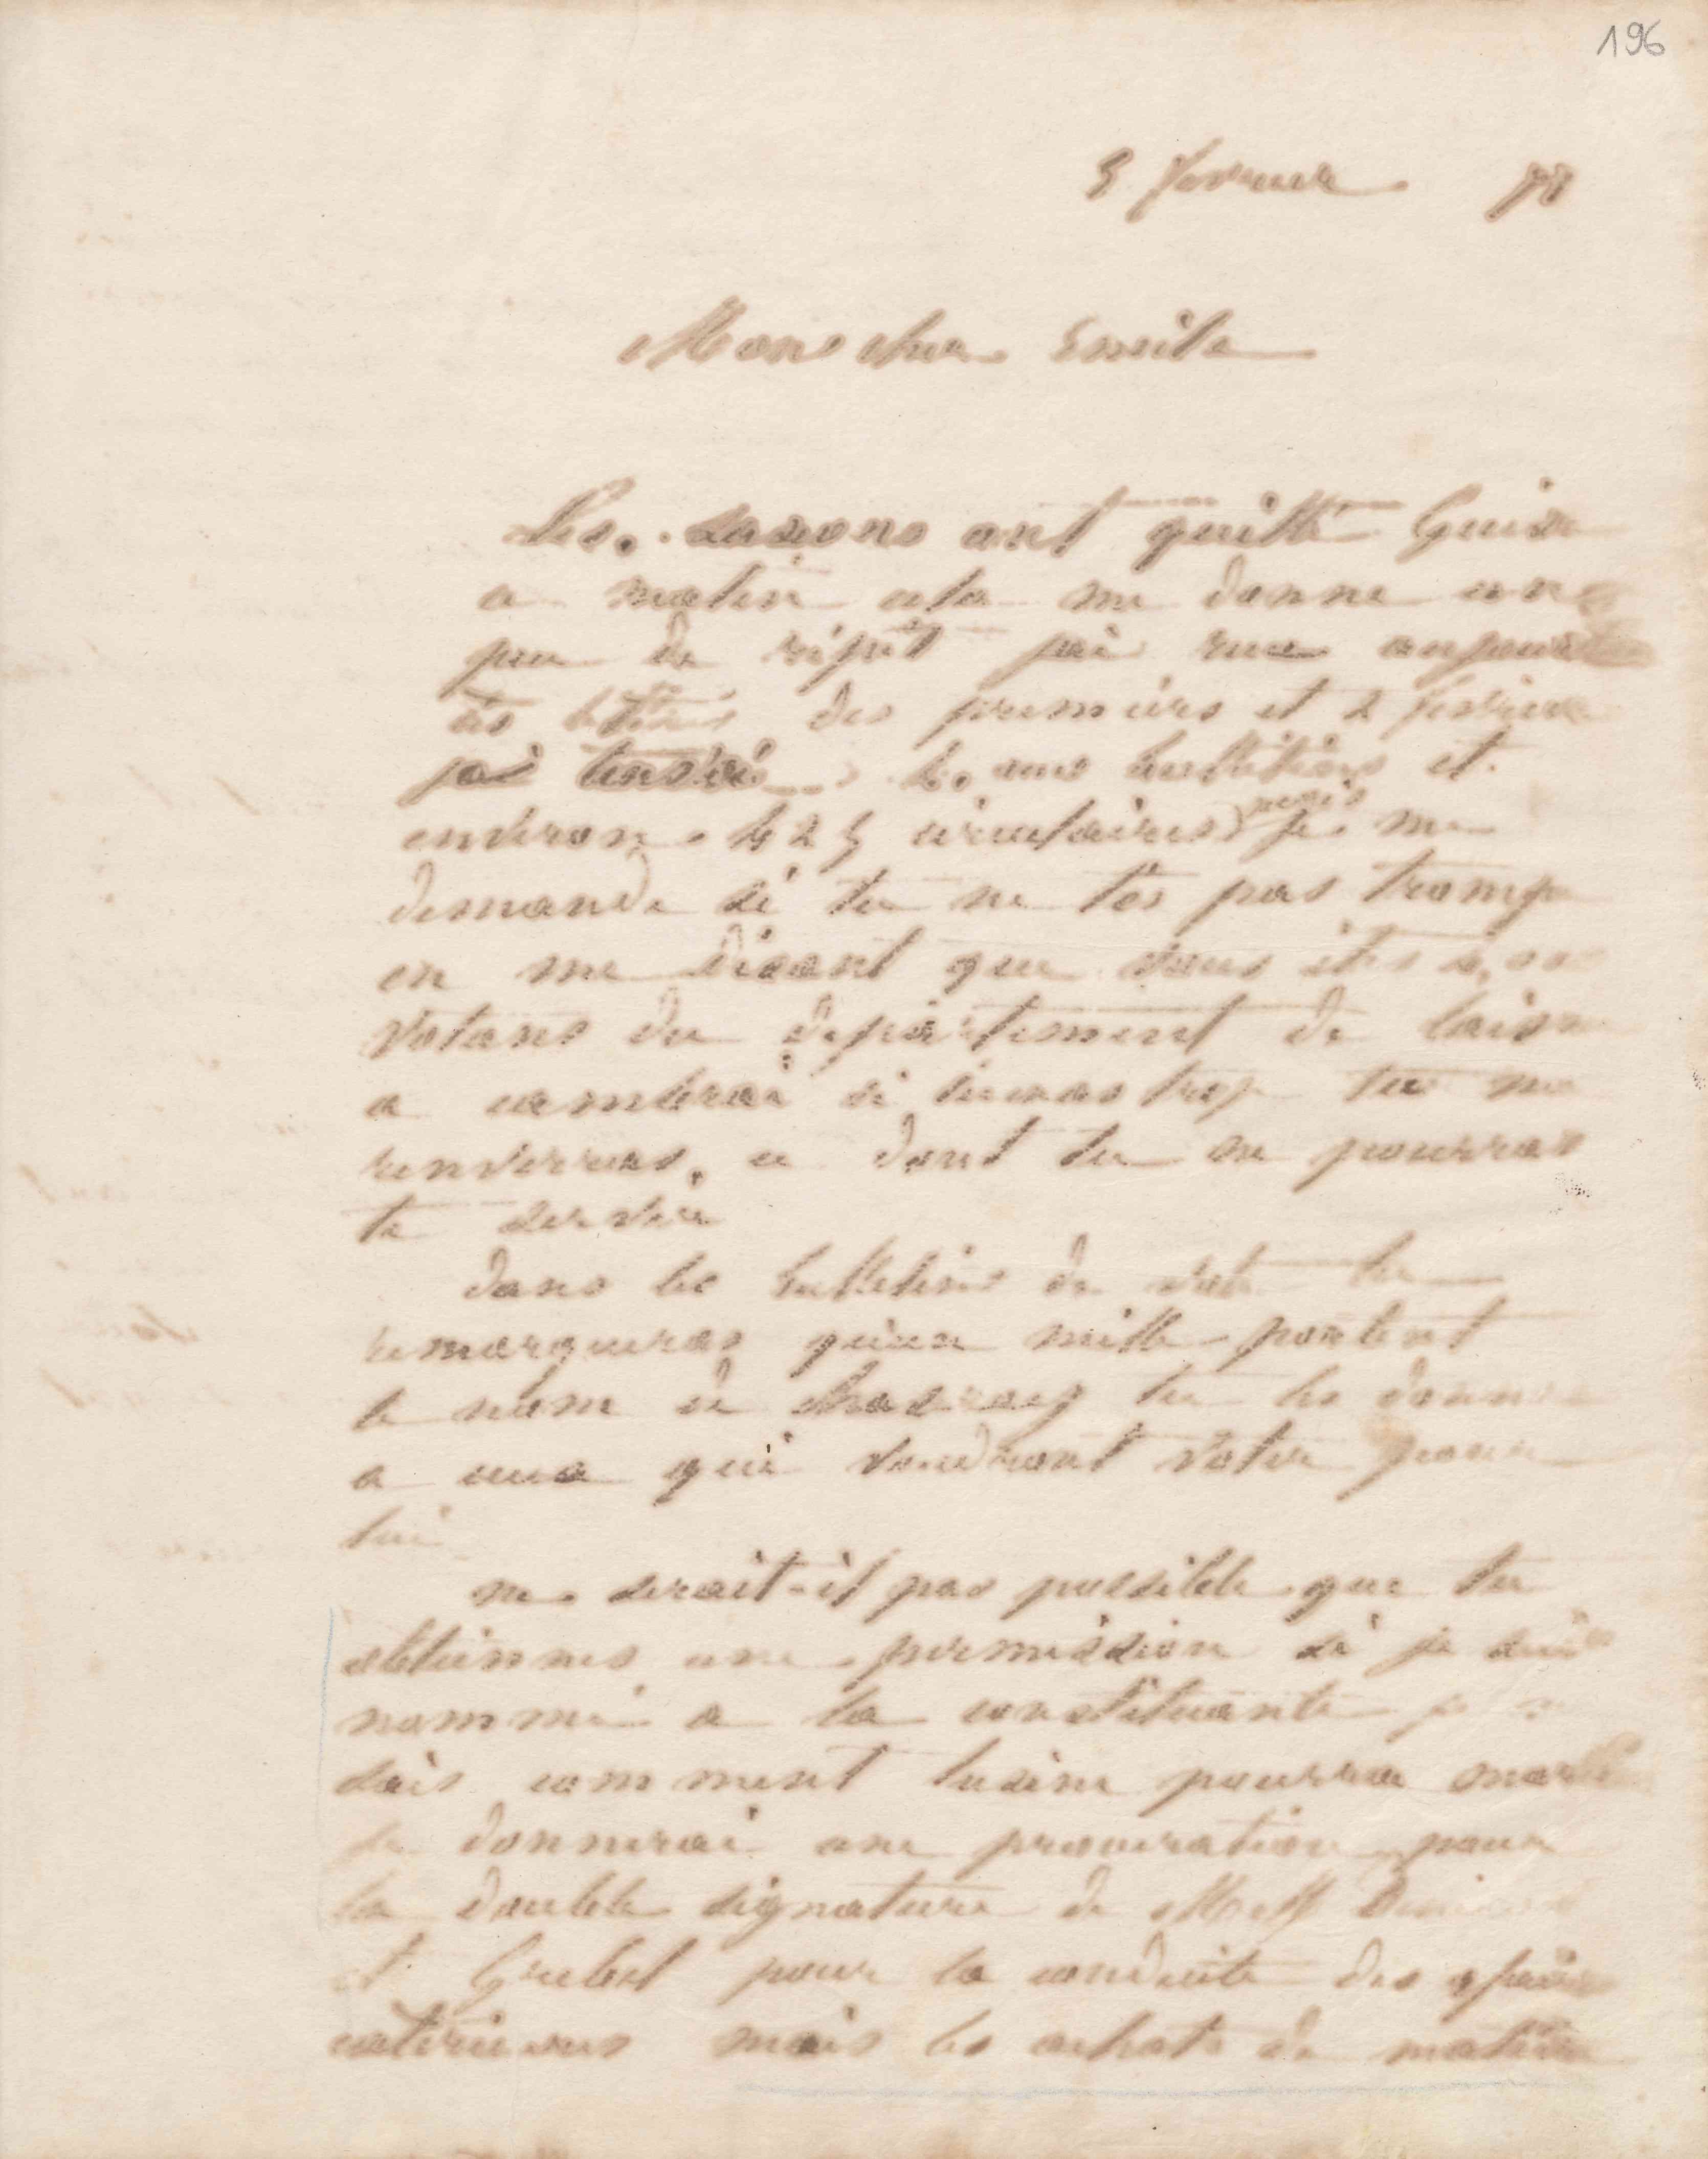 196
5 fevrier 71
Mon cher Emile
Les saxons ont quitté Guise
ce matin cela me donne un
peu de répit jai recu aujourdhui
tes lettres des premiers et 2 fevrier
jai tenvoi 4,000 bulletins et
environ 425 circulaires mais je me
demande si tu ne tes pas trompe
en me disant que vous êtes 4,000
votans du departement de laisne
a cambrai si tu en as trop tu me
renverras ce dont tu ne pourras
te servir
dans les bulletins de vote tu
remarqueras quun mille portent
le nom de tu les donneras
a ceux qui voudront voter pour
lui
ne serait-il pas possible que tu
obtiennes une permission si je suis
nommé a la constituante je ne
sais comment lusine pourra marcher
je donnerai une procuration pour
la double signature de MM
et Grebel pour la conduite des affaires
extérieures mais les achats de matière